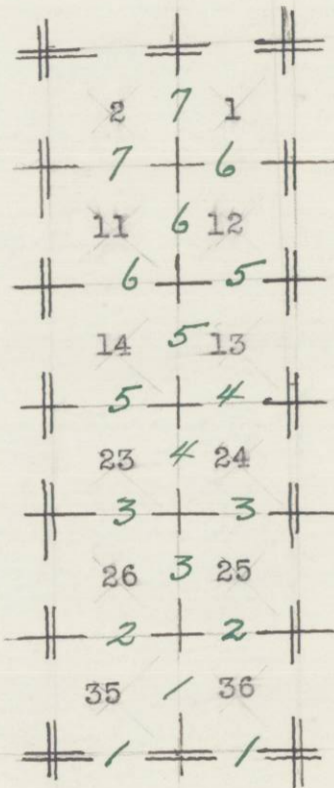 2 7 1
7 6
11 6 12
6 5
14 5 13
5 4
23 4 24
3 3
26 3 25
2 2
35 1 36
1 1